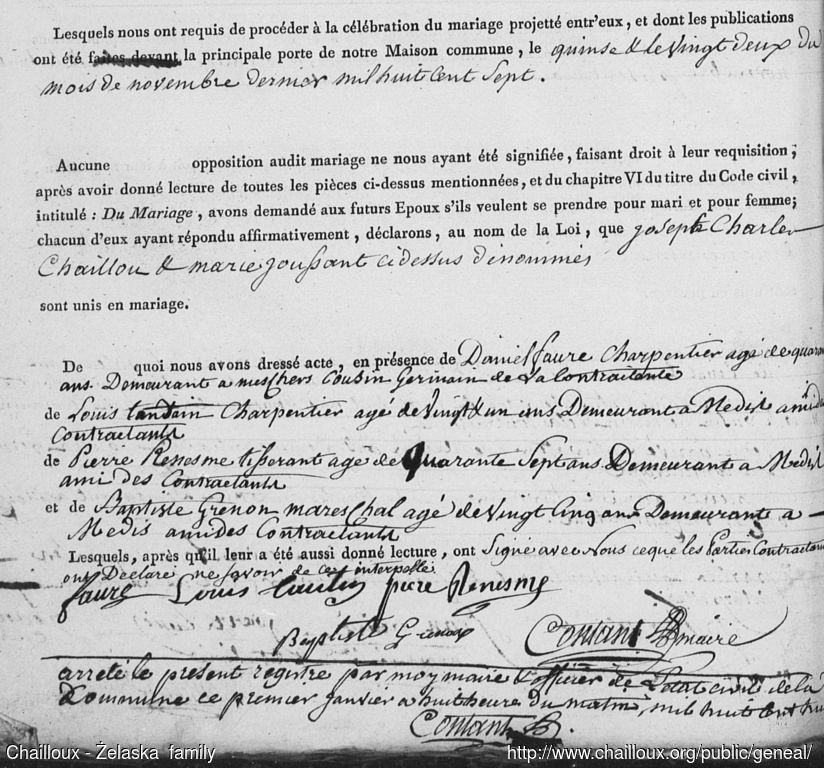 Lesquels nous ont requis de procéder à la célébration du mariage projetté entr'eux, et dont les publications
ont été faites devant la principale porte de notre Maison commune, le quinse & le Vingt deux du
mois de novembre dernier mil huit Cent Sept.
Aucune opposition audit mariage ne nous ayant été signifiée, faisant droit à leur requisition;
après avoir donné lecture de toutes les pièces ci-dessus mentionnées, et du chapitre VI du titre du Code civil,
intitulé : Du Mariage, avons demandé aux futurs Epoux s'ils veulent se prendre pour mari et pour femme;
chacun d'eux ayant répondu affirmativement, déclarons, au nom de la Loi, que joseph Charles
Chaillou & marie joussant cidessus dénommés
sont unis en mariage.
De quoi nous avons dressé acte, en présence de Daniel faure Charpentier agé de quaran
ans. Demeurant a meschers Cousin Germain de La Contractante
de Louis Charpentier agé de Vingt & un ans Demeurant a Medis ami des
Contractants
de Pierre Renesme tisserant agé de Quarante Sept ans Demeurant a Medis
ami des Contractants
et de Baptiste Grenon mareschal agé de Vingt Cinq ans Demeurant a
Medis ami des Contractants
Lesquels, après qu'il leur a été aussi donné lecture, ont Signé avec Nous ce que les Parties Contractan
ont Declaré ne savoir de ce interpellé
faure Louis piere Renesme
Baptiste Grenon Contant maire
arreté le present registre par moy maire & officier de L'etat civil de la
Commune ce premier janvier a huit heure du matin, mil huit Cent hui
Contant
Chailloux - Żelaska family
http://www.chailloux.org/public/geneal/